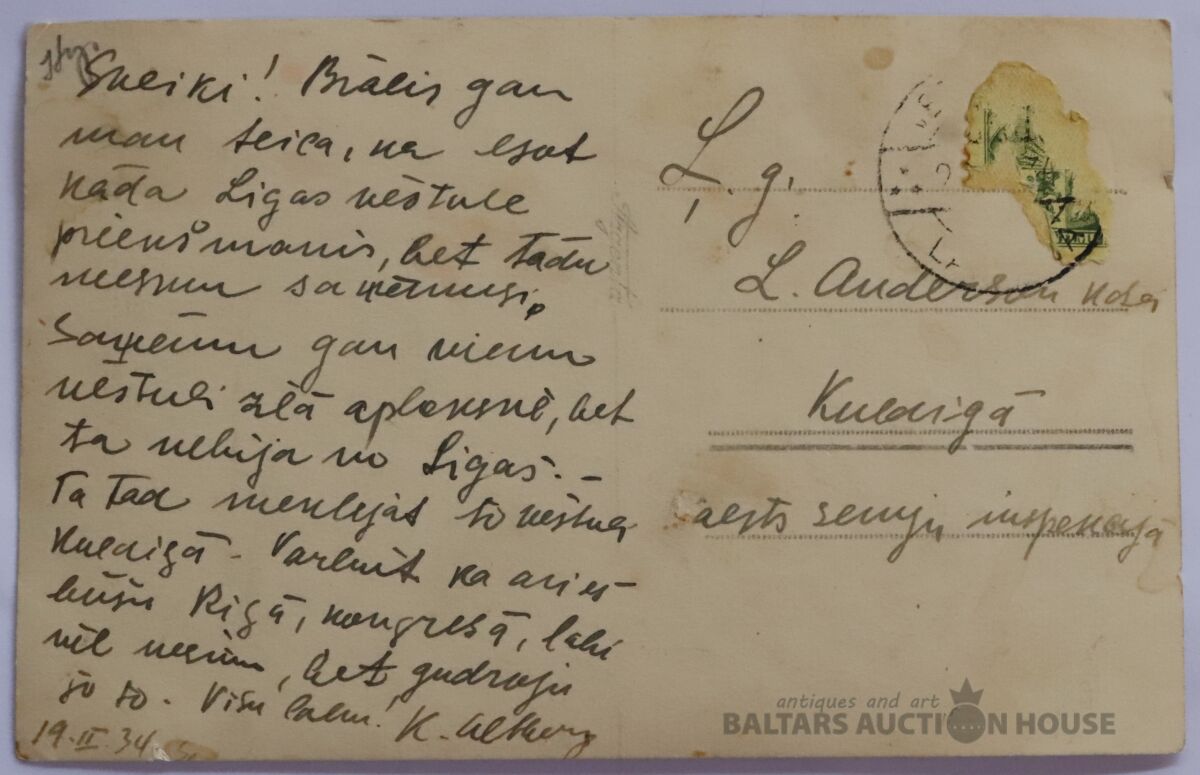 Sveiki! Brālis gan
man teica, ka esot
kāda Ligas vēstule
priekš manis, bet tādu
nesmu saņēmusi,
Saņēmu gan vienu
vēstuli zilā aploksnē, bet
ta nebija no Ligas. –
Ta tad meklējat šo vēstuli
Kuldīgā. Varbūt ka arī es
būšu Rīgā, kongresā, labi
vēl nezinu, bet gudroju
šo to. Visu labu! K.
19.II.34
Ļ. g.
L. Anderson kdze
Kuldīgā
valsts zemju inspekcijā
antiques and art
BALTARS AUCTION HOUSE